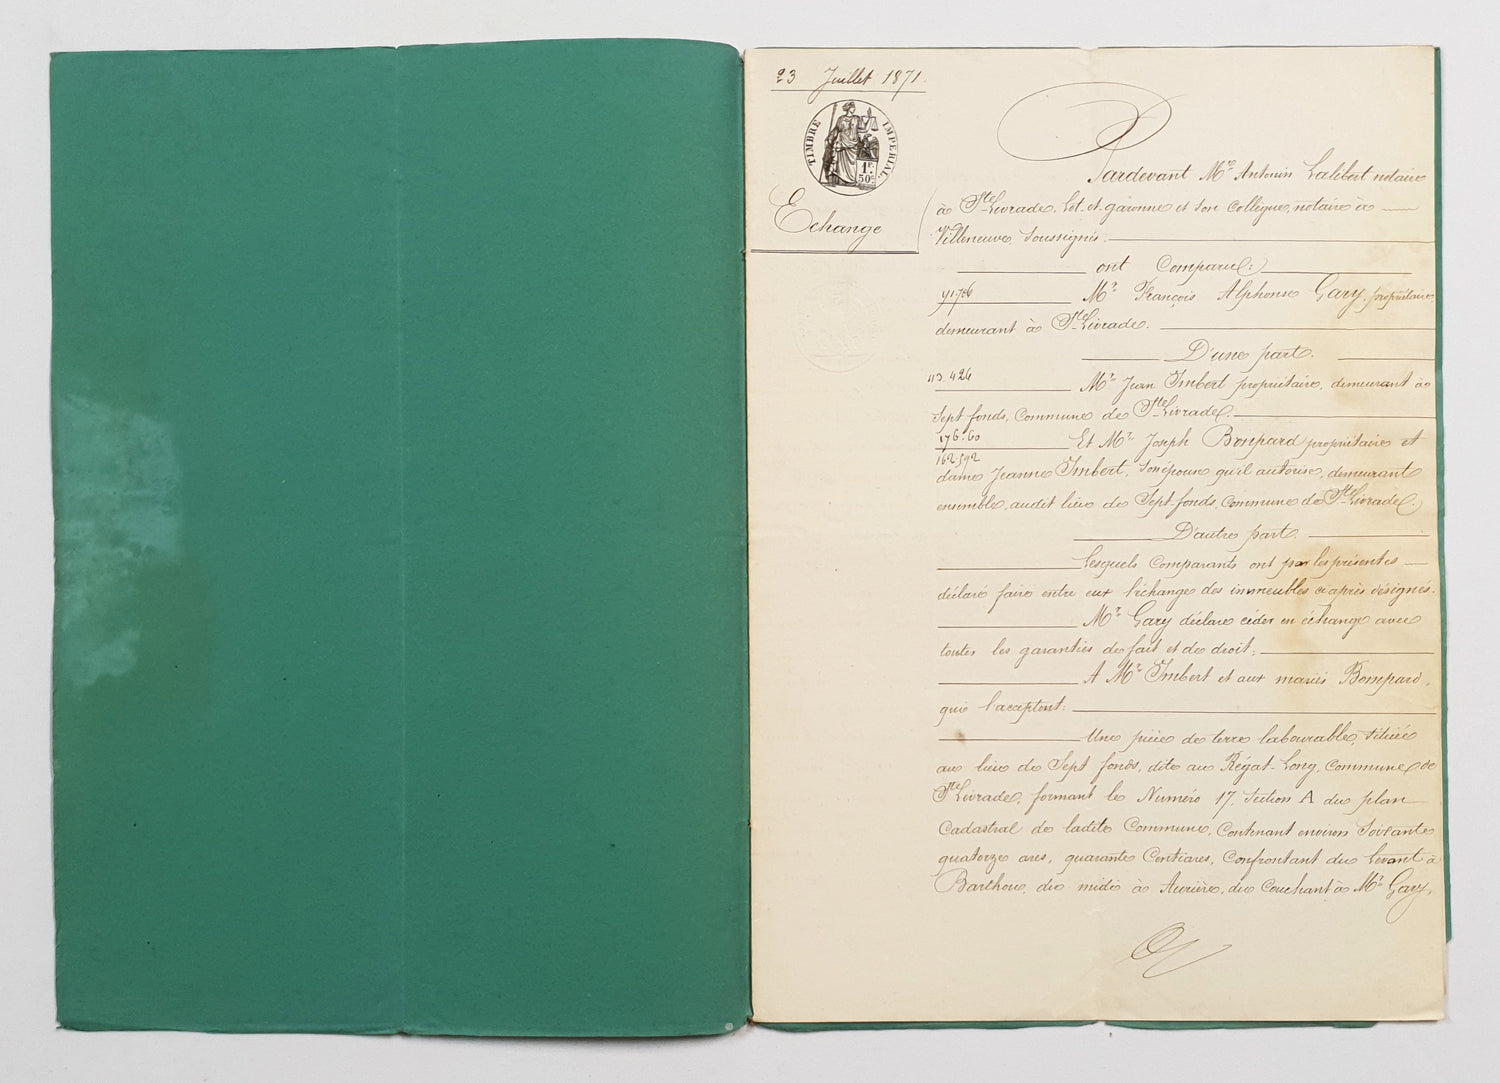 23 Juillet 1871.
TIMBRE IMPERIAL
1F.
50C.
Echange
Pardevant Mre Antonin Lalibert notaire
à Ste Livrade, Lot et garonne et son Collègue, notaire à
Villeneuve, Soussignés.
ont Comparu:
Mr François Alphonse Gary, propriétaire,
demeurant à Ste Livrade.
D'une part.
113.426
Mr Jean Imbert propriétaire, demeurant à
Sept fonds, Commune de Ste Livrade.
176.60
Et Mr Joseph Bompard propriétaire et
162.592
dame Jeanne Imbert, Son épouse qu'il autorise, demeurant
ensemble, audit lieu de Sept-fonds, Commune de Ste Livrade.
D'autre part.
Lesquels Comparants ont par les présentes
déclaré faire entre eux l'échange des immeubles ci après désignés.
Mr Gary déclare céder en échange avec
toutes les garanties de fait et de droit;
A Mr Imbert et aux mariés Bompard,
qui l'acceptent:
Une pièce de terre labourable, Située
au lieu de Sept fonds, dite au Régat-Long, Commune de
Ste Livrade, formant le Numéro 17, Section A du plan
Cadastral de ladite Commune, Contenant environ Soixante
quatorze ares, quarante Centiares, Confrontant du levant à
Barthou, du midi à Aurière, du Couchant à Mr Gary,